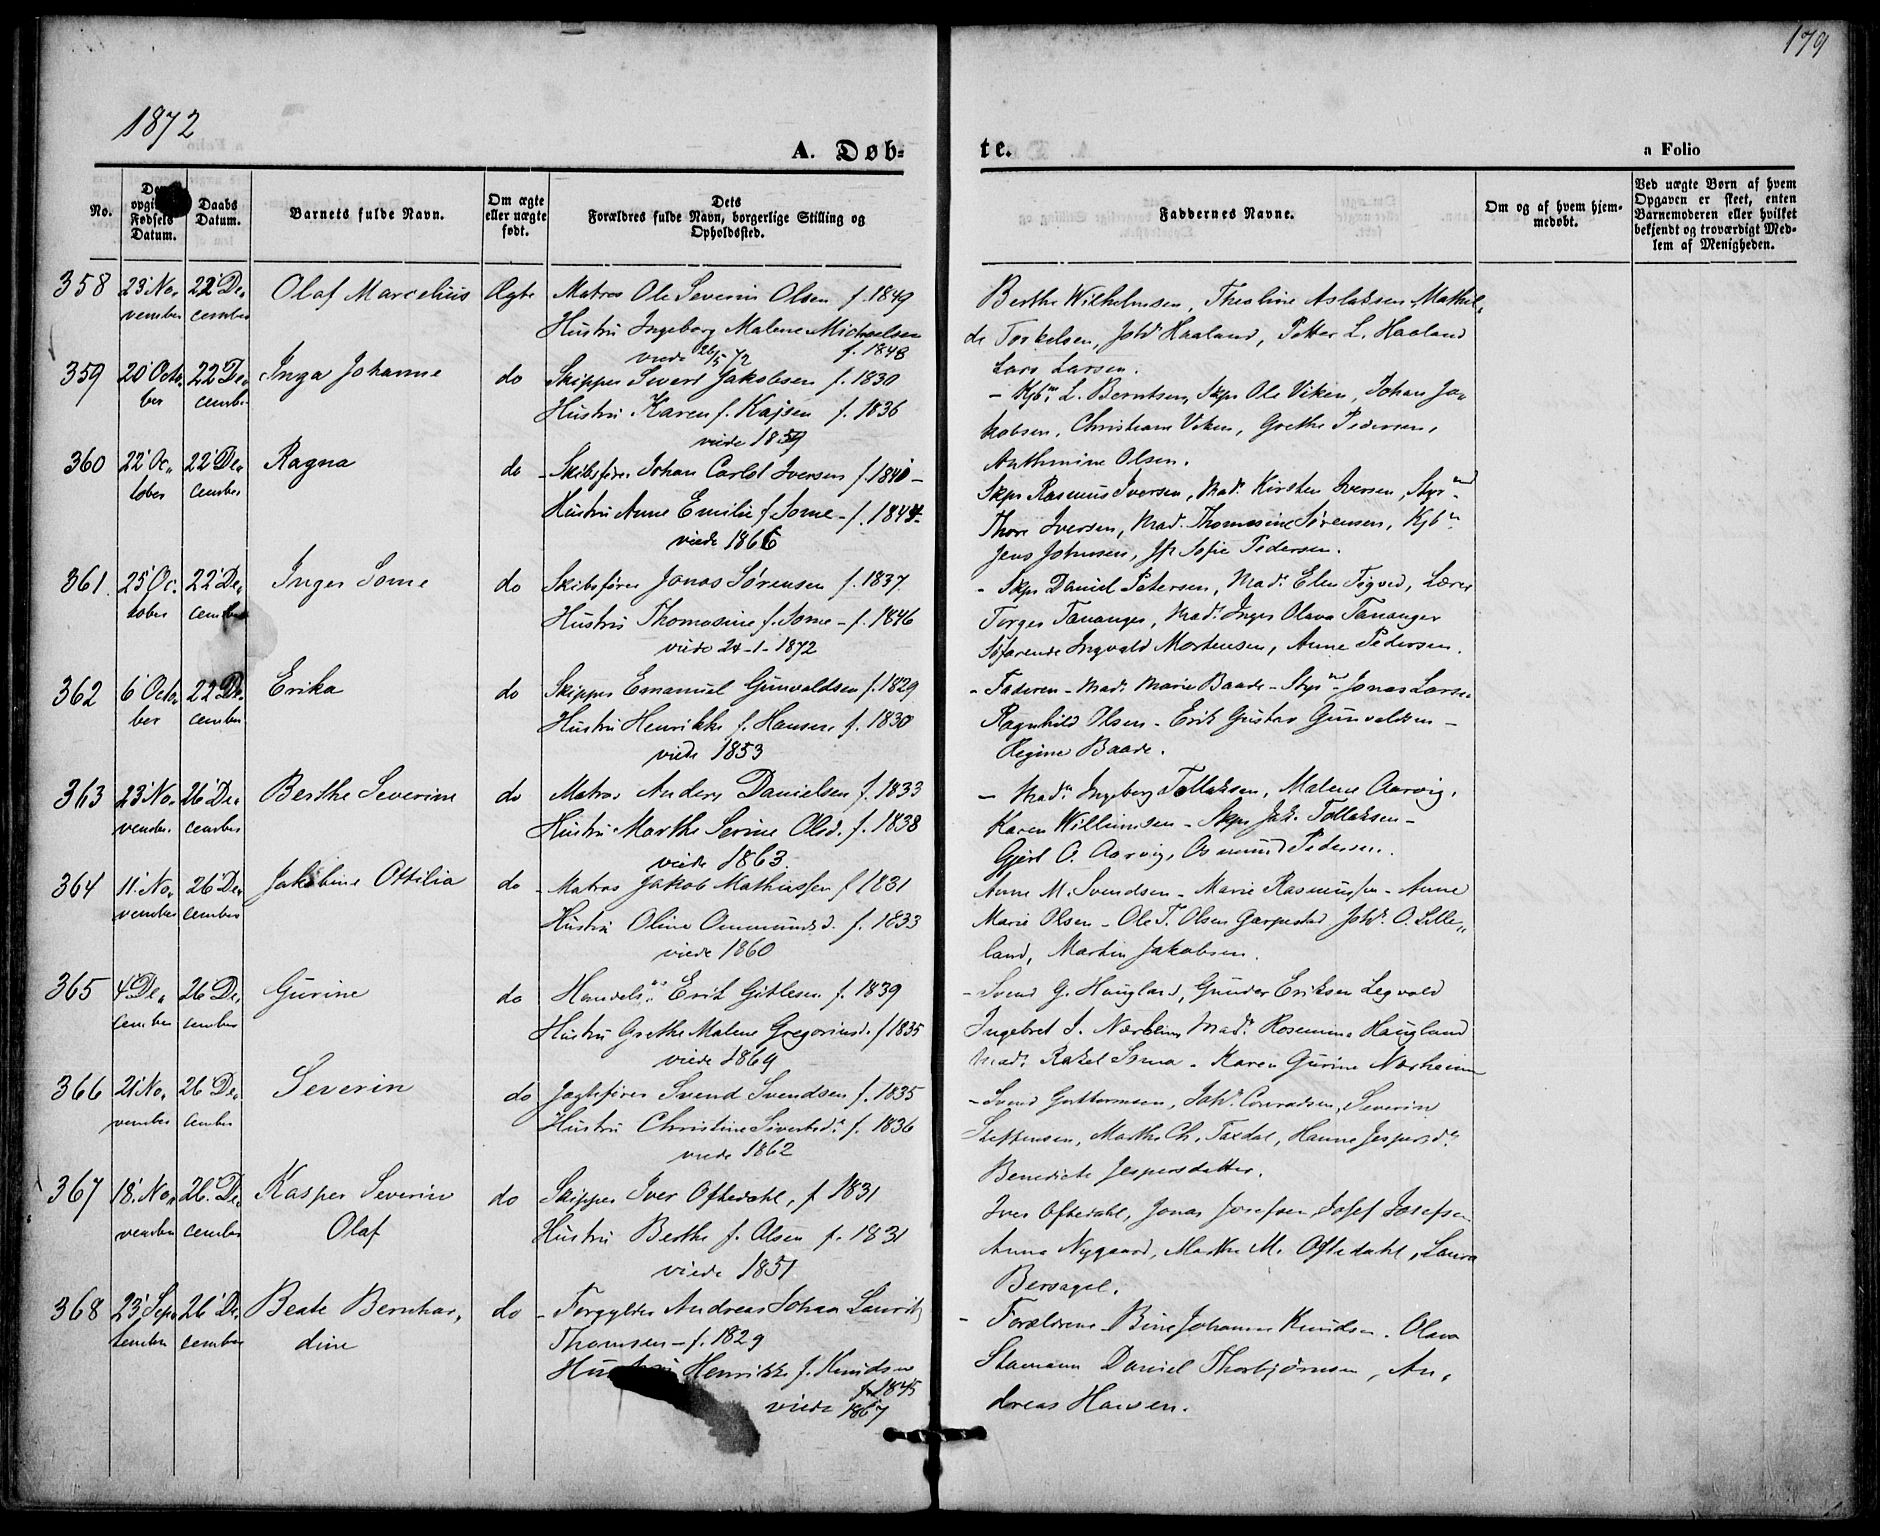 179
1872
A. Døb-
te.
a Folio
No.
opgi
Fødsels
Datum.
Daabs
Datum.
Barnets fulde Navn.
Om ægte
eller uægte
født.
Dets
Forældres fulde Navn, borgerlige Stilling og
Opholdssted.
Faddernes Navne.
Om og af hvem hjem-
medøbt.
Ved uægte Børn af hvem
Opgaven er skeet, enten
Barnemoderen eller hvilket
bekjendt og troværdigt Med-
lem af Menigheden.
358 23' No- 22' De- Olaf Marcelius Ægte Matros Ole Severin Olsen f. 1849
vember cember Hustru Ingeborg Malene Michaelsen
viede 26/5 72 f. 1848
Berthe Wilhelmsen, Theoline Aslaksen Mathil-
de Torkelsen, Johs Haaland, Petter L. Haaland
Lars Larsen.
359 20' Octo- 22' De- Inga Johanne do Skipper Sivert Jakobsen f. 1830
ber cember Hustru Karen f. Kajsen f. 1836
viede 1859
- Kjbm L. Berntsen, Skpr Ole Viken, Johan Ja-
kobsen, Christiane Viken, Grethe Pedersen,
Anthonine Olsen.
360 22' Oc- 22' De- Ragna do - Skibsfører Johan Carlot Iversen f. 1840 -
tober cember Hustru Anne Emilie f. Some - f. 1844
viede 1866
Skpr Rasmus Iversen, Mad. Kirsten Iversen, Styrmd
Thore Iversen, Mad. Thomasine Sørensen, Kjbm
Jens Johnsen, Jfr Sofie Pedersen.
361 25' Oc- 22' De- Inger Some do Skibsfører Jonas Sørensen f. 1837
tober cember Hustru Thomasine f. Some - f. 1846
viede 24-1-1872
- Skpr Daniel Petersen, Mad. Elen Tigved, Lærer
Torger Tananger, Mad. Inger Olava Tananger
Søfarende Ingvald Mortensen, Anne Pedersen.
362 6' Octo- 22' De- Erika do Skipper Emanuel Gunvaldsen f. 1829
ber cember Hustru Henrikke f. Hansen f. 1830
viede 1853
- Faderen - Mad. Marie Baade - Styrm Jonas Larsen
Ragnhild Olsen - Erik Gustav Gunvaldsen -
Regine Baade.
363 23' No- 26' De- Berthe Severine do Matros Anders Danielsen f. 1833
vember cember Hustru Marthe Serine Olsd. f. 1838
viede 1863.
- Mad. Ingeborg Tollaksen, Malene Aarvig,
Karen Willumsen - Skpr Jak. Tollaksen -
Gjert O. Aarvig, Osmund Pedersen.
364 11' No- 26' De- Jakobine Ottilia do - Matros Jakob Mathiassen f 1831
vember cember Hustru Oline Ommundsd. f. 1833
viede 1860
Anne M. Svendsen - Marie Rasmussen - Anne
Marie Olsen - Ole T. Olsen Garpestad Johs. O. Lille-
land, Martin Jakobsen.
365 4' De- 26' De- Gurine do Handelsm Erik Gitlesen f. 1839
cember cember Hustru Grethe Malene Gregoriusd. f 1835
viede 1869
- Svend G. Haugland, Gunder Eriksen Legvold
Ingebret I. Nærheim, Mad. Rosemine Haugland
Mad. Rakel Soma - Karen Gurine Norheim
366 21' No- 26' De- Severin do Jagtfører Svend Svendsen f. 1835
vember cember Hustru Christine Sivertsd. f. 1836
viede 1862
- Svend Guttormsen, Johs. Conradsen, Severin
Steffensen, Marthe Ch. Taxdal, Hanne Jespersd.
Benedicte Jespersdatter.
367 18' No- 26' De- Kasper Severin do Skipper Iver Oftedahl, f 1831
vember cember Olaf Hustru Berthe f. Olsen f. 1831
viede 1851
Iver Oftedahl, Jonas Josefsen, Josef Josefsen
Anna Nygaard, Marthe M. Oftedahl, Laura
Bersagel.
368 23' Sep- 26' De- Beate Bernhar- do - Forgylder Andreas Johan Lauritz
tember cember dine Thomsen - f. 1829
Hustru Henrikke f. Knudsen
f. 1845
viede 1867
- Forældrene - Bine Johanne Knudsen - Olava
Stamann Daniel Thorbjørnsen, An-
dreas Hansen.